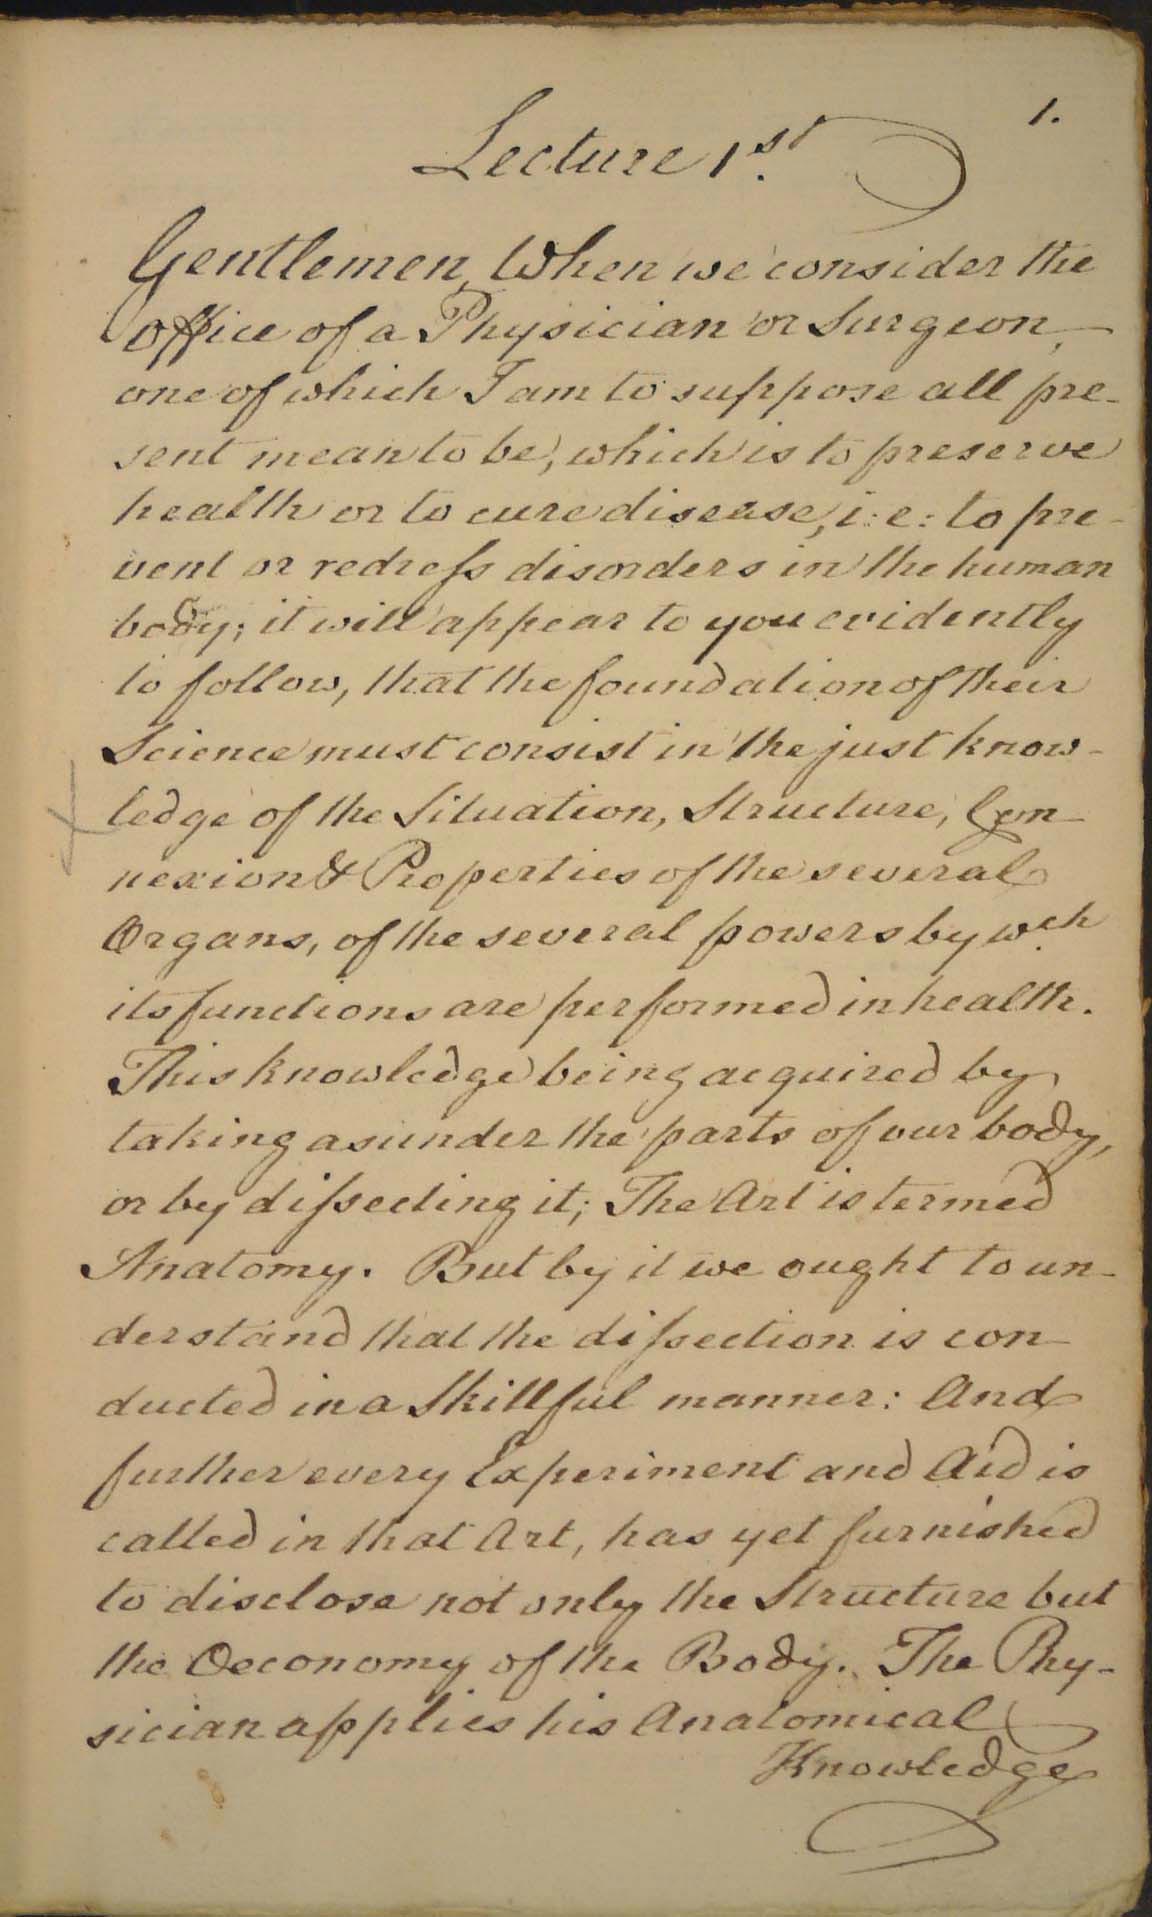 1.
Lecture 1st.
Gentlemen, When we consider the
office of a Physician or Surgeon,
one of which I am to suppose all pre-
sent mean to be, which is to preserve
health or to cure disease, i:e: to pre-
vent or redreſs disorders in the human
body; it will appear to you evidently
to follow, that the foundation of their
Science must consist in the just know-
ledge of the Situation, Structure, Con-
nexion & Properties of the several
Organs, of the several powers by wch
its functions are performed in health.
This knowledge being acquired by
taking asunder the parts of our body,
or by diſsecting it; The Art is termed
Anatomy. But by it we ought to un-
derstand that the diſsection is con-
ducted in a Skillful manner: And
further every Experiment and Aid is
called in that Art, has yet furnished
to disclose not only the Structure but
the Oeconomy of the Body. The Phy-
sician applies his Anatomical
Knowledge